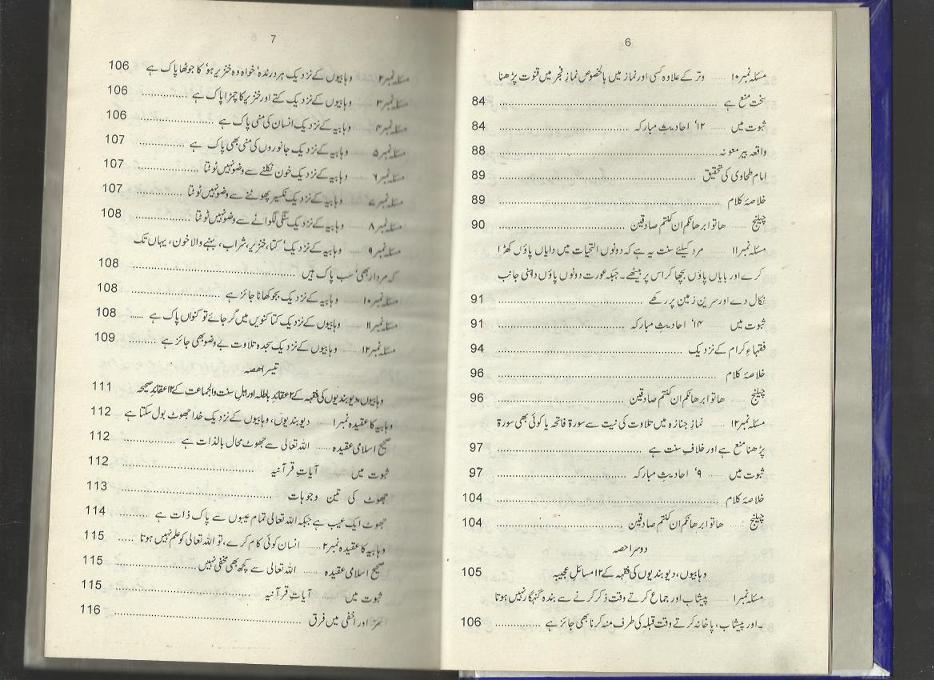 6
مسئلہ نمبر۱۰ ...... وتر کے علاوہ کسی اور نماز میں بالخصوص نماز فجر میں قنوت پڑھنا
سخت منع ہے ...... 84
ثبوت میں ...... ’۱۲‘ احادیث مبارکہ ...... 84
واقعہ بیر معونہ ...... 88
امام طحاوی کی تحقیق ...... 89
خلاصۂ کلام ...... 89
چیلنج ...... ھاتوا برھانکم ان کنتم صادقین ...... 90
مسئلہ نمبر۱۱ ...... مرد کیلئے سنت یہ ہے کہ دونوں التحیات میں دایاں پاؤں کھڑا
کرے اور بایاں پاؤں بچھا کر اس پر بیٹھے۔ جبکہ عورت دونوں پاؤں داہنی جانب
نکال دے اور سرین زمین پر رکھے ...... 91
ثبوت میں ...... ’۱۴‘ احادیث مبارکہ ...... 91
فقہاء کرام کے نزدیک ...... 94
خلاصۂ کلام ...... 96
چیلنج ...... ھاتوا برھانکم ان کنتم صادقین ...... 96
مسئلہ نمبر۱۲ ...... نماز جنازہ میں تلاوت کی نیت سے سورۃ فاتحہ یا کوئی بھی سورۃ
پڑھنا منع ہے اور خلافِ سنت ہے ...... 97
ثبوت میں ...... ’۹‘ احادیث مبارکہ ...... 97
خلاصۂ کلام ...... 104
چیلنج ...... ھاتوا برھانکم ان کنتم صادقین ...... 104
دوسرا حصہ
وہابیوں، دیوبندیوں کی فقہہ کے ۱۲ مسائل عجیبہ ...... 105
مسئلہ نمبر۱ ...... پیشاب اور جماع کرتے وقت ذکر کرنے سے بندہ گنہگار نہیں ہوتا
۔اور پیشاب، پاخانہ کرتے وقت قبلہ کی طرف منہ کرنا بھی جائز ہے ...... 106
7
مسئلہ نمبر۲ ...... وہابیوں کے نزدیک ہر درندہ ’خواہ وہ خنزیر ہو‘ کا جوٹھا پاک ہے 106
مسئلہ نمبر۳ ...... وہابیوں کے نزدیک کتے اور خنزیر کا چمڑا پاک ہے ...... 106
مسئلہ نمبر۴ ...... وہابیہ کے نزدیک انسان کی منی پاک ہے ...... 106
مسئلہ نمبر۵ ...... وہابیوں کے نزدیک جانوروں کی منی بھی پاک ہے ...... 107
مسئلہ نمبر۶ ...... وہابیہ کے نزدیک خون نکلنے سے وضو نہیں ٹوٹتا ...... 107
مسئلہ نمبر۷ ...... وہابیہ کے نزدیک نکسیر پھوٹنے سے وضو نہیں ٹوٹتا ...... 107
مسئلہ نمبر۸ ...... وہابیہ کے نزدیک سنگی لگوانے سے وضو نہیں ٹوٹتا ...... 108
مسئلہ نمبر۹ ...... وہابیہ کے نزدیک ’کتا، خنزیر، شراب، بہنے والا خون، یہاں تک
کہ مردار بھی‘ سب پاک ہیں ...... 108
مسئلہ نمبر۱۰ ...... وہابیہ کے نزدیک بجو کھانا جائز ہے ...... 108
مسئلہ نمبر۱۱ ...... وہابیوں کے نزدیک کتا کنویں میں گر جائے تو کنواں پاک ہے ...... 108
مسئلہ نمبر۱۲ ...... وہابیوں کے نزدیک سجدہ تلاوت بے وضو بھی جائز ہے ...... 109
تیسرا حصہ
وہابیوں، دیوبندیوں کی فقہہ کے ۱۲ عقائد باطلہ اور اہل سنت والجماعت کے ۱۲ عقائد صحیحہ 111
وہابیہ کا عقیدہ نمبر۱ ...... دیوبندیوں، وہابیوں کے نزدیک خدا جھوٹ بول سکتا ہے 112
صحیح اسلامی عقیدہ ...... اللہ تعالٰی سے جھوٹ محال بالذات ہے ...... 112
ثبوت میں ...... آیات قرآنیہ ...... 112
جھوٹ کی تین وجوہات ...... 113
جھوٹ ایک عیب ہے جبکہ اللہ تعالٰی تمام عیبوں سے پاک ذات ہے ...... 114
وہابیہ کا عقیدہ نمبر۲ ...... انسان کوئی کام کرے، تو اللہ تعالٰی کو علم نہیں ہوتا ...... 115
صحیح اسلامی عقیدہ ...... اللہ تعالٰی سے کچھ بھی مخفی نہیں ...... 115
ثبوت میں ...... آیات قرآنیہ ...... 115
اور اخفٰی میں فرق ...... 116